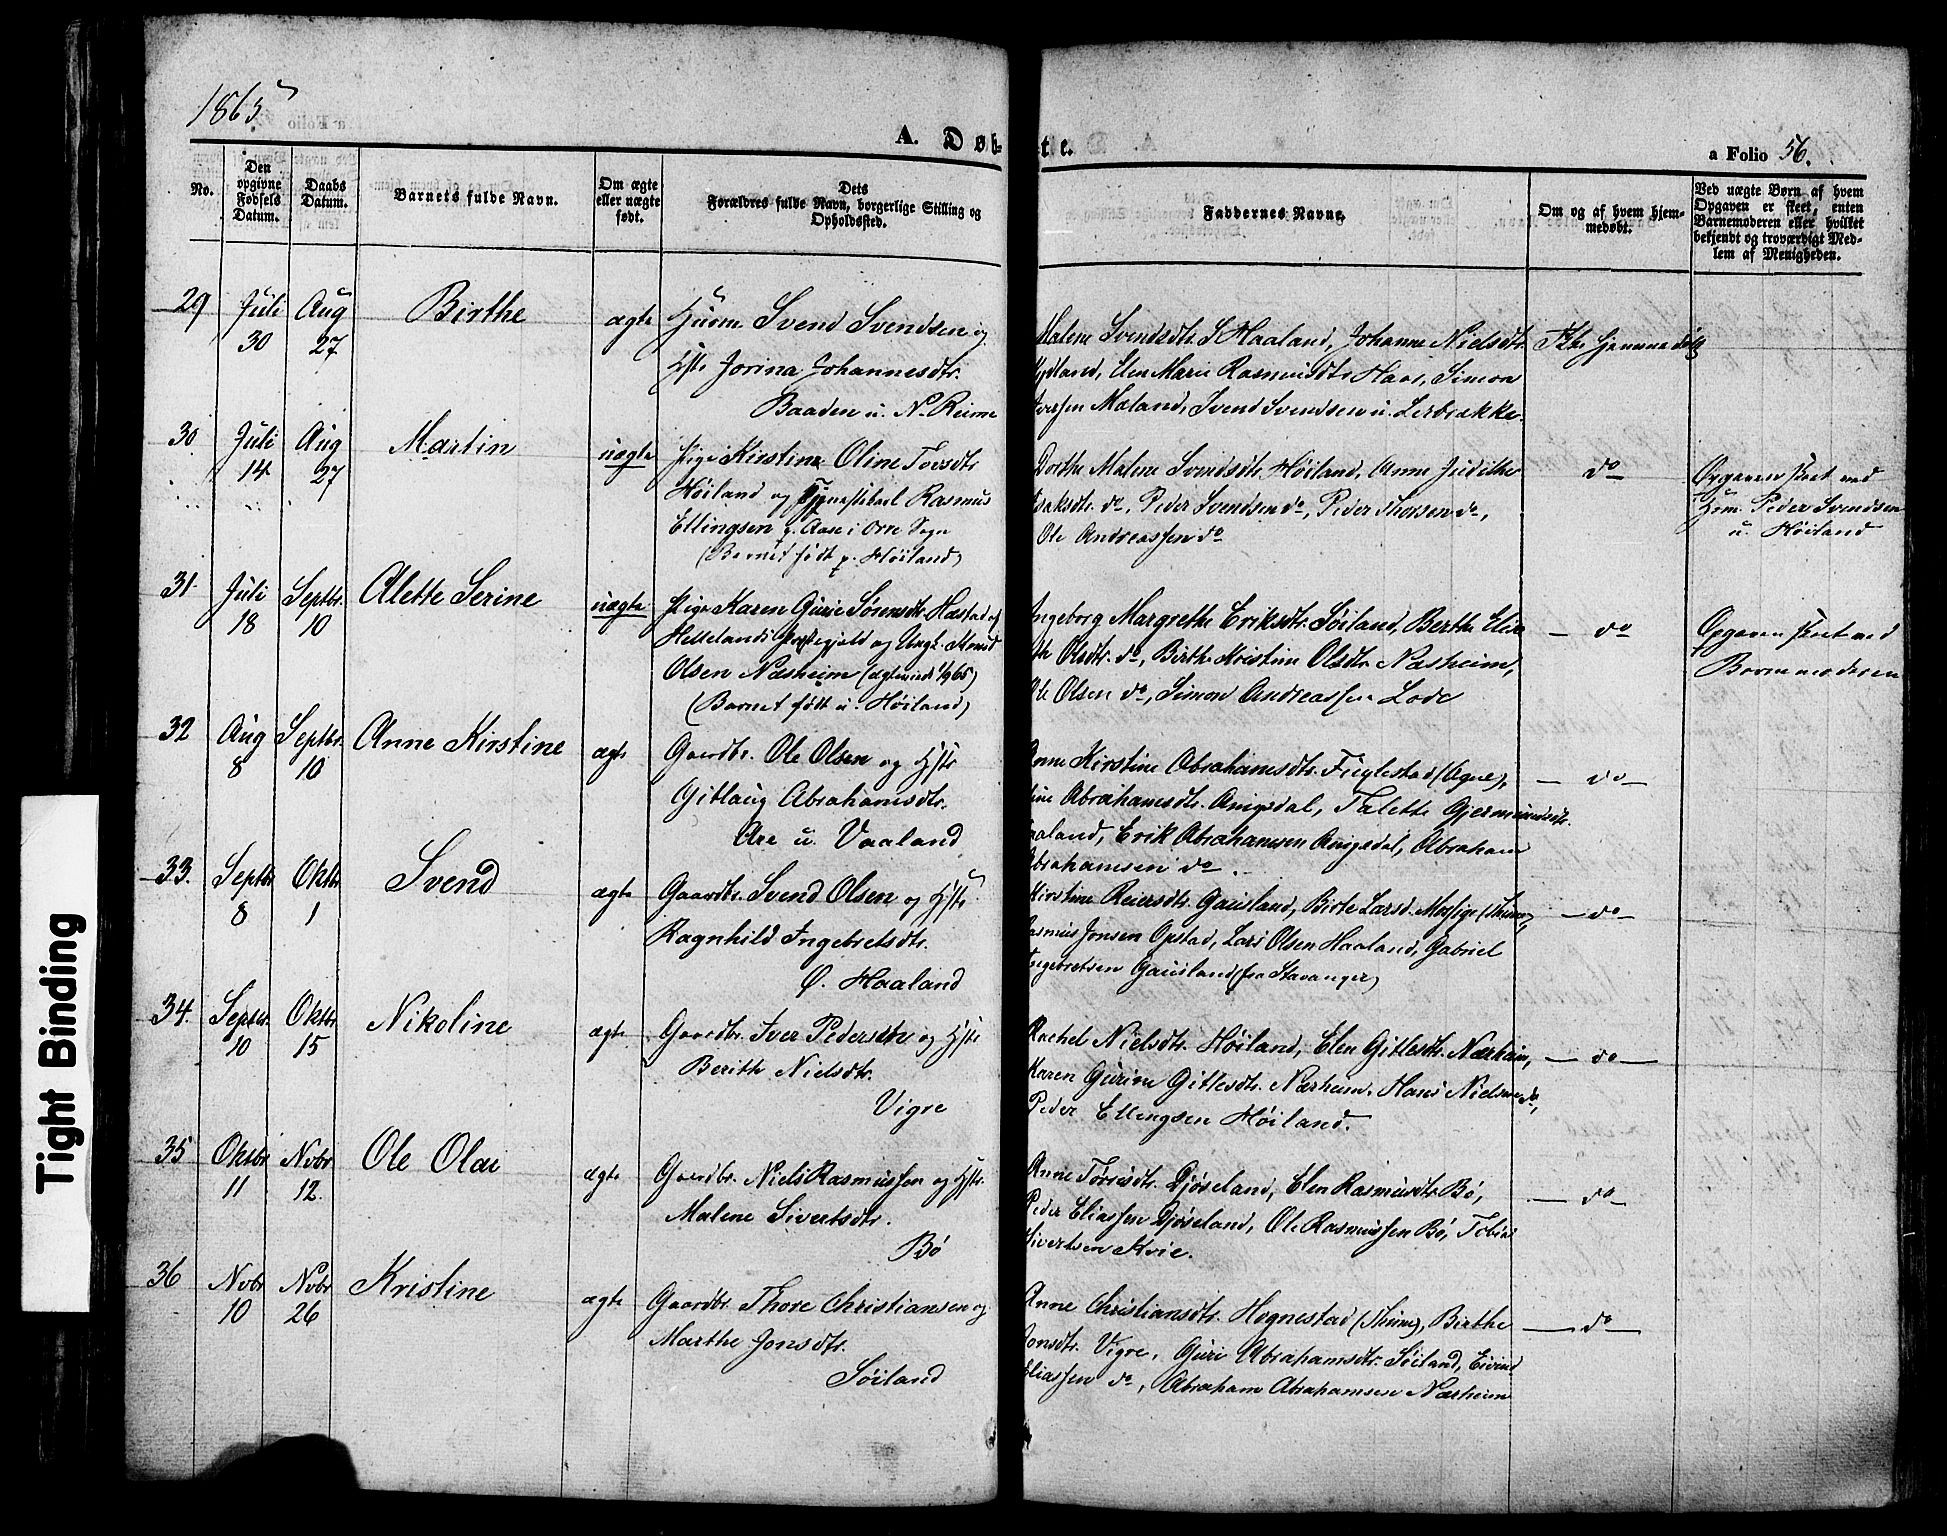 1865
A. Døb-
te.
a Folio 56.
No.
Den opgivne Fødsels Datum.
Daabs Datum.
Barnets fulde Navn.
Om ægte eller uægte født.
Dets Forældres fulde Navn, borgerlige Stilling og Opholdssted.
Faddernes Navne.
Om og af hvem hjemmedøbt.
Ved uægte Børn af hvem Opgaven er skeet, enten Barnemoderen eller hvilket bekjendt og troværdigt Medlem af Menigheden.
29 Juli 30 Aug 27 Birthe ægte
Huusm Svend Svendsen og
Hst. Jorina Johannesdtr.
Baaden u. N. Reime
Malene Svendsdtr. S Haaland, Johanne Nielsdtr.
Elen Marie Rasmusdtr. Haar, Simon
Maland, Svend Svendsen u. Lerbrække.
Ikke hjemmedøbt
30. Juli 14 Aug 27 Martin uægte
Pige Kirstine Oline Toresdtr
Høiland og Tjenestekarl Rasmus
Ellingsen p. Aase i Orre Sogn
(Barnet født p. Høiland)
Dorthe Malene Svendsdtr. Høiland, Anne Judithe
Isaksdtr. do, Peder Svendsen do, Peder Thorsen do,
Ole Andreassen do
do
Opgaven skeet ved
Hsm. Peder Svendsen
u. Høiland
31. Juli 18 Septbr. 10 Alette Serine uægte
Pige Karen Gurie Sørensdtr. Hæstad af
Hetlands Præstegjeld og Ungk.
Olsen Næsheim
(Barnet født u. Høiland)
Ingeborg Margrethe Eriksdtr. Søiland, Berthe Elisa
beth Olsdtr. do, Birthe Kristine Olsdtr. Næsheim,
Ole Olsen do, Simon Andreassen Lode
do
Opgaven skeet ved
Barnemoderen
32 Aug 8 Septbr. 10 Anne Kirstine ægte
Gaardbr. Ole Olsen og Hst.
Gitlaug Abrahamsdtr.
Are u. Vaaland
Anne Kirstine Abrahamsdtr. Fuglestad (Ogne),
Abrahamsdtr. Aniksdal, Talette Gjermundsdtr.
Vaaland, Erik Abrahamsen Aniksdal, Abraham
Abrahamsen do.
do
33. Septbr 8 Oktbr 1 Svend ægte
Gaardbr. Svend Olsen og Hst.
Ragnhild Ingebretsdtr.
Ø. Haaland
Kirstine Reiersdtr. Gausland, Birte Larsd. Mossige (Thime),
Rasmus Jonsen Opstad, Lars Olsen Haaland, Gabriel
Ingebretsen Gausland (fra Stavanger)
do
34. Septbr. 10 Oktbr 15 Nikoline ægte
Gaardbr. Iver Pedersen og Hst.
Berithe Nielsdtr.
Vigre
Rachel Nielsdtr. Høiland, Elen Gitlesdtr. Nærheim,
Karen Gurine Gitlesdtr. Nærheim, Hans Nielsen do,
Peder Ellingsen Høiland.
do
35 Oktbr 11 Novbr 12. Ole Olai ægte
Gaardbr. Niels Rasmussen og Hst.
Malene Sivertsdtr.
Bø
Anne Tørresdtr. Djøseland, Elen Rasmusdtr. Bø,
Peder Eliassen Djøseland, Ole Rasmussen Bø, Tobias
Sivertsen Kvie.
do
36 Novbr 10 Novbr 26 Kristine ægte
Gaardbr. Thore Christiansen og
Marthe Jonsdtr.
Søiland
Anne Christiansdtr. Hognestad (Thime), Birthe
Jonsdtr. Vigre, Guri Abrahamsdtr. Søiland, Eivind
Eliassen do, Abraham Abrahamsen Nærheim
do
Tight Binding